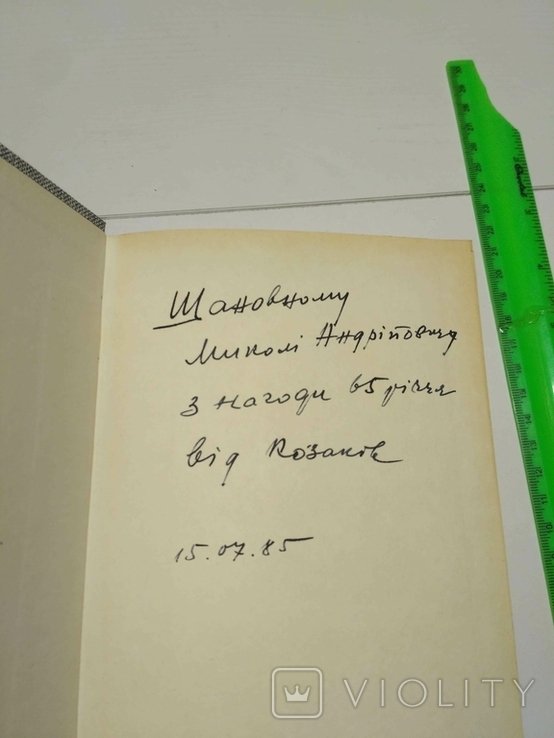 Шановному
Миколі Андрійовичу
з нагоди 65 річчя
від Козаків
15.07.85
VIOLITY